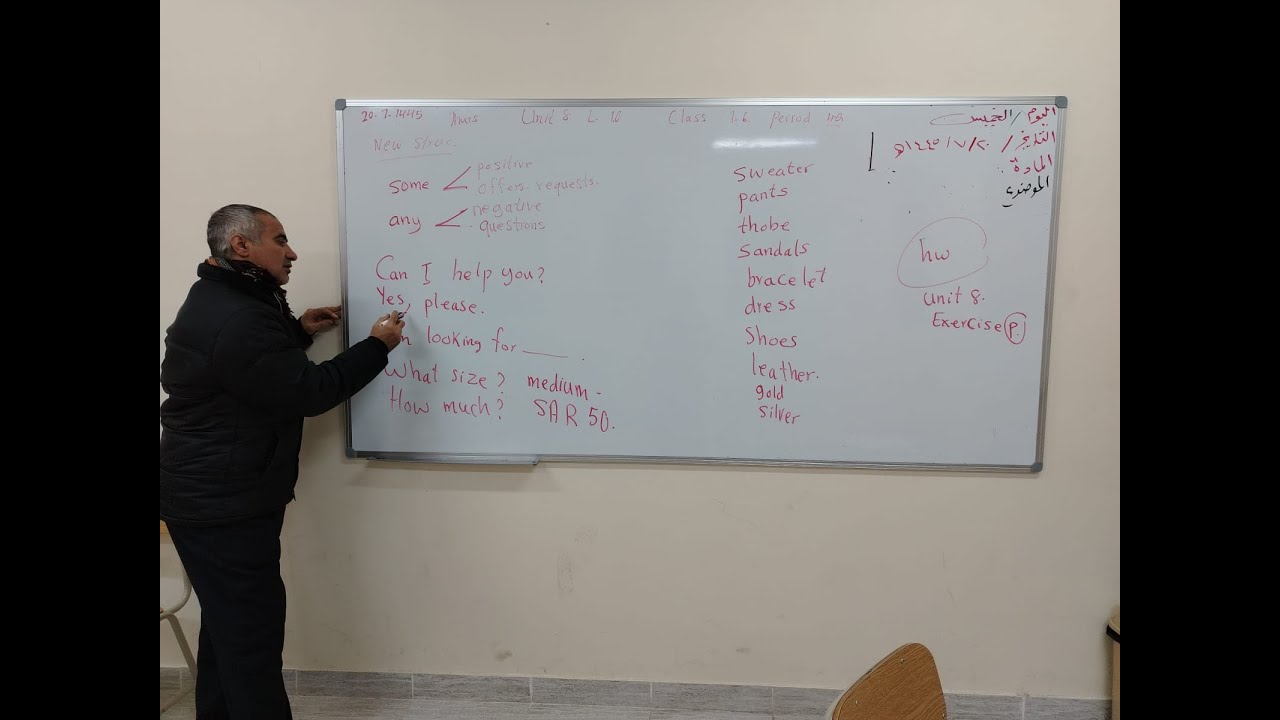 20.7.1445 Unit 8 L. 10 Class 1.6 Period
New Struc.
some
positive
offers. requests.
any
negative
questions
Can I help you?
Yes, please.
looking for ____ .
What size? medium -
How much? SAR 50.
sweater
pants
thobe
Sandals
bracelet
dress
Shoes
leather.
gold
silver
اليوم / الخميس
التاريخ / ٢٠/٧/١٤٤٥هـ
المادة
الموضوع
hw
Unit 8.
Exercise P.